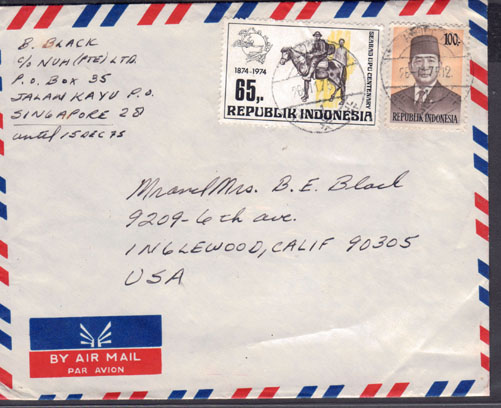 B. BLACK
C/o NUH (PTE) LTD.
P.O. BOX 35
JALAN KAYU P.O.
SINGAPORE 28
until 15 DEC 75
1874-1974
65,-
SEABAD UPU CENTENARY
REPUBLIK INDONESIA
100,-
REPUBLIK INDONESIA
Mr and Mrs. B. E. Black
9209-6th ave.
INGLEWOOD, CALIF 90305
USA
BY AIR MAIL
PAR AVION